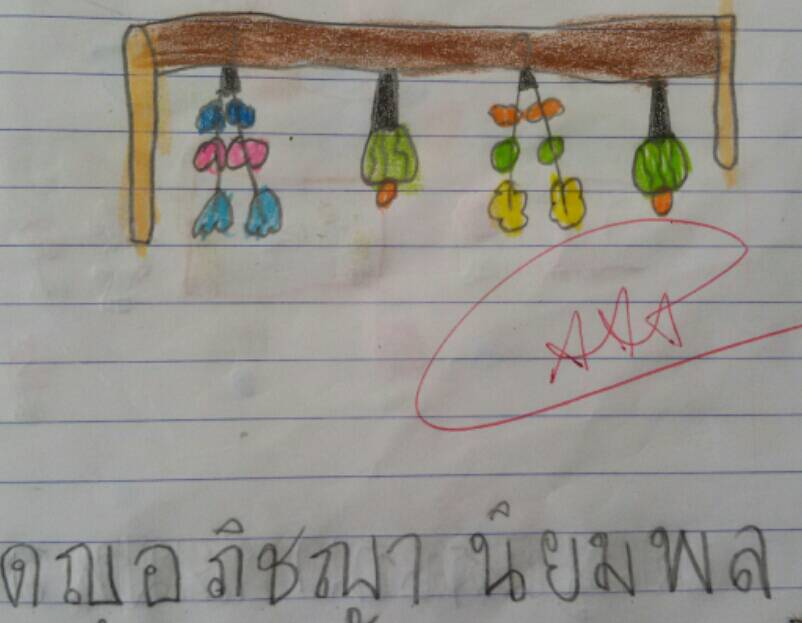 AAA
ดญอภิชญา นิยมพล